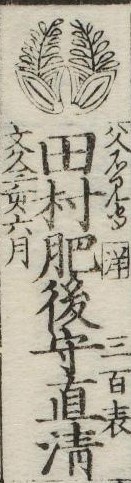 父
田村肥後守直清
三百表
文久三亥六月